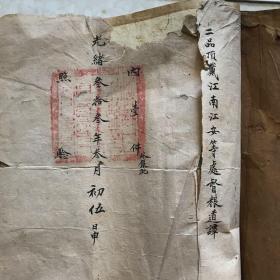 二品頂戴江南江安等處督糧道譚
內壹件
光緒叁拾叁年叁月初伍日申
照驗